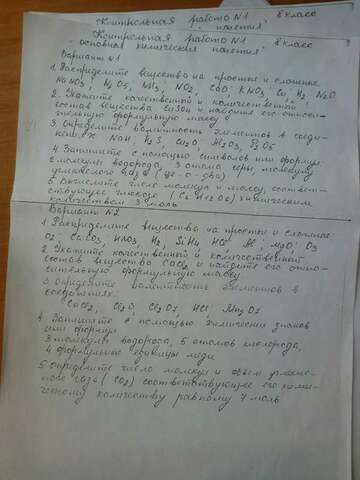 Контрольная работа N1 8 класс
"понятия"
Контрольная работа N1 8 класс
"основная химическая понятия"
Вариант N1
1. Распределите вещества на простые и сложные
NaNO3, N2O5, NH3, NO2, CaO, KNO3, Cu, H2, N2O
2. Укажите качественной и количественной
состав вещества CuSO4 и найдите его относи-
тельную формульную массу
3. Определите валентность элементов в соеди-
нениях
4. Запишите с помощью символов или формул
молекулы водорода, 3 атома серы, молекулу
углекислого газа (це-о-два)
5. Вычислите число молекул и массу, соответ-
ствующие глюкозе химическим
количеством 3 моль
Вариант N2
1. Распределите вещества на простые и сложные
O2, CaCO3, HNO3, H2, SiH4 HCl MgO, O3
2. Укажите качественной и количественной
состав вещества CaCl2 и найдите его отно-
сительную формульную массу
3. Определите валентность элементов в
соединениях:
HCl Mn2O7
4. Запишите с помощью химических знаков
или формул
3 молекулы водорода, 5 атомов кислорода,
4 формульные единицы меди
5 Определите число молекул и объем углекис-
лого газа (CO2) соответствующее его хими-
ческому количеству равному 7 моль